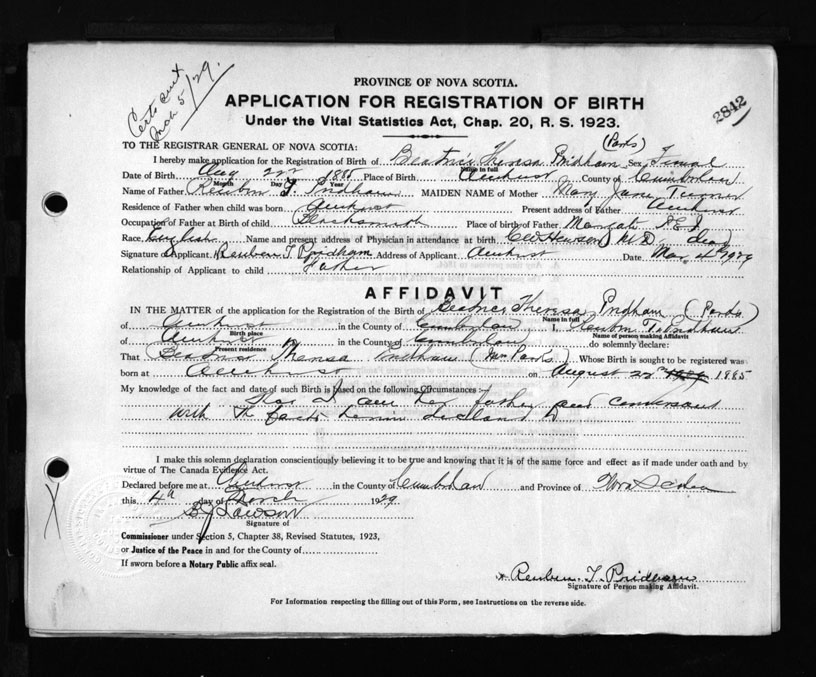 Certs sent
Mch 5/29.
PROVINCE OF NOVA SCOTIA.
APPLICATION FOR REGISTRATION OF BIRTH
2842
Under the Vital Statistics Act, Chap. 20, R. S. 1923.
TO THE REGISTRAR GENERAL OF NOVA SCOTIA: (Parks)
I hereby make application for the Registration of Birth of Beatrice Theresa Pridham Sex Female
Name in full
Date of Birth Aug 22 1885 Place of Birth Amherst County of Cumberland
Month Day Year
Name of Father Reuben T. Pridham MAIDEN NAME of Mother Mary Jane Turner
Residence of Father when child was born Amherst Present address of Father Amherst
Occupation of Father at Birth of Child Blacksmith Place of birth of Father Margate P.E.I
Race English Name and present address of Physician in attendance at birth Hewson M.D. dead
Signature of Applicant Reuben T. Pridham Address of Applicant Amherst Date Mar 4 1929
Relationship of Applicant to child Father
AFFIDAVIT
IN THE MATTER of the application for the Registration of the Birth of Beatrice Theresa Pridham (Parks)
Name in full
of Amherst in the County of Cumberland I, Reuben T. Pridham
Birth place Name of person making Affidavit
of Amherst in the County of Cumberland do solemnly declare:
Present residence
That Beatrice Theresa Pridham (Mrs Parks) Whose Birth is sought to be registered was
born at Amherst on August 22nd 1885
My knowledge of the fact and date of such Birth is based on the following Circumstances:—
I am her father and conversant
with the facts herein declared to
I make this solemn declaration conscientiously believing it to be true and knowing that it is of the same force and effect as if made under oath and by
virtue of The Canada Evidence Act.
Declared before me at Amherst in the County of Cumberland and Province of Nova Scotia
this 4th day of March 1929
Lawson
Signature of
Commissioner under Section 5, Chapter 38, Revised Statutes, 1923,
or Justice of the Peace in and for the County of
If sworn before a Notary Public affix seal.
x Reuben T. Pridham
Signature of Person making Affidavit.
For Information respecting the filling out of this Form, see Instructions on the reverse side.
X